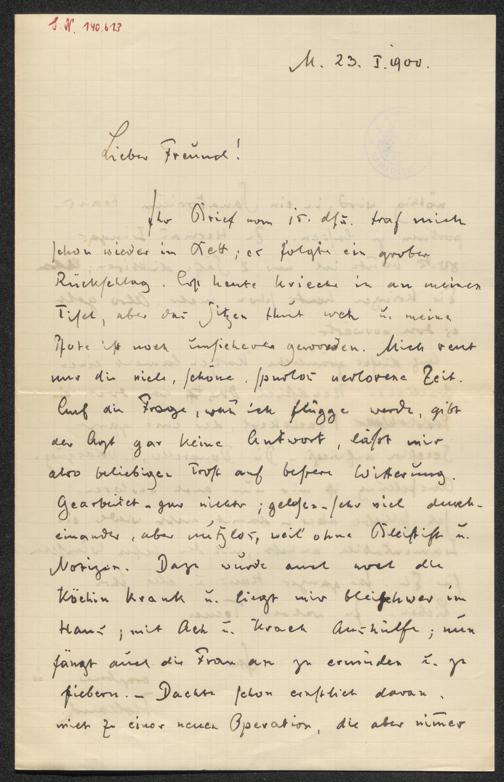 I. N. 140.623
M. 23. I. 1900.
Lieber Freund!
Ihr Brief vom 15. dss. traf mich
schon wieder in Bett; es folgte ein grober
Rückschlag. Erst heute krieche ich an meinen
Tisch, aber das Sitzen thut weh u. meine
Pfote ist noch unsicherer geworden. Mich reut
nur die viele, schöne, spurlos verlorene Zeit.
Auf die Frage, wann ich flügge werde, gibt
der Arzt gar keine Antwort, läßt mir
also beliebigen Trost auf bessere Witterung.
Gearbeitet – gar nichts; gelesen – sehr viel durch-
einander, aber nutzlos, weil ohne Bleistift u.
Notizen. Dazu wurde auch noch die
Köchin krank u. liegt mir bleischwer im
Haus; mit Ach u. Krach Aushülfe; nun
fängt auch die Frau an zu ermüden u. zu
fiebern. – Dachte schon ernstlich daran,
mich zu einer neuen Operation, die aber immer